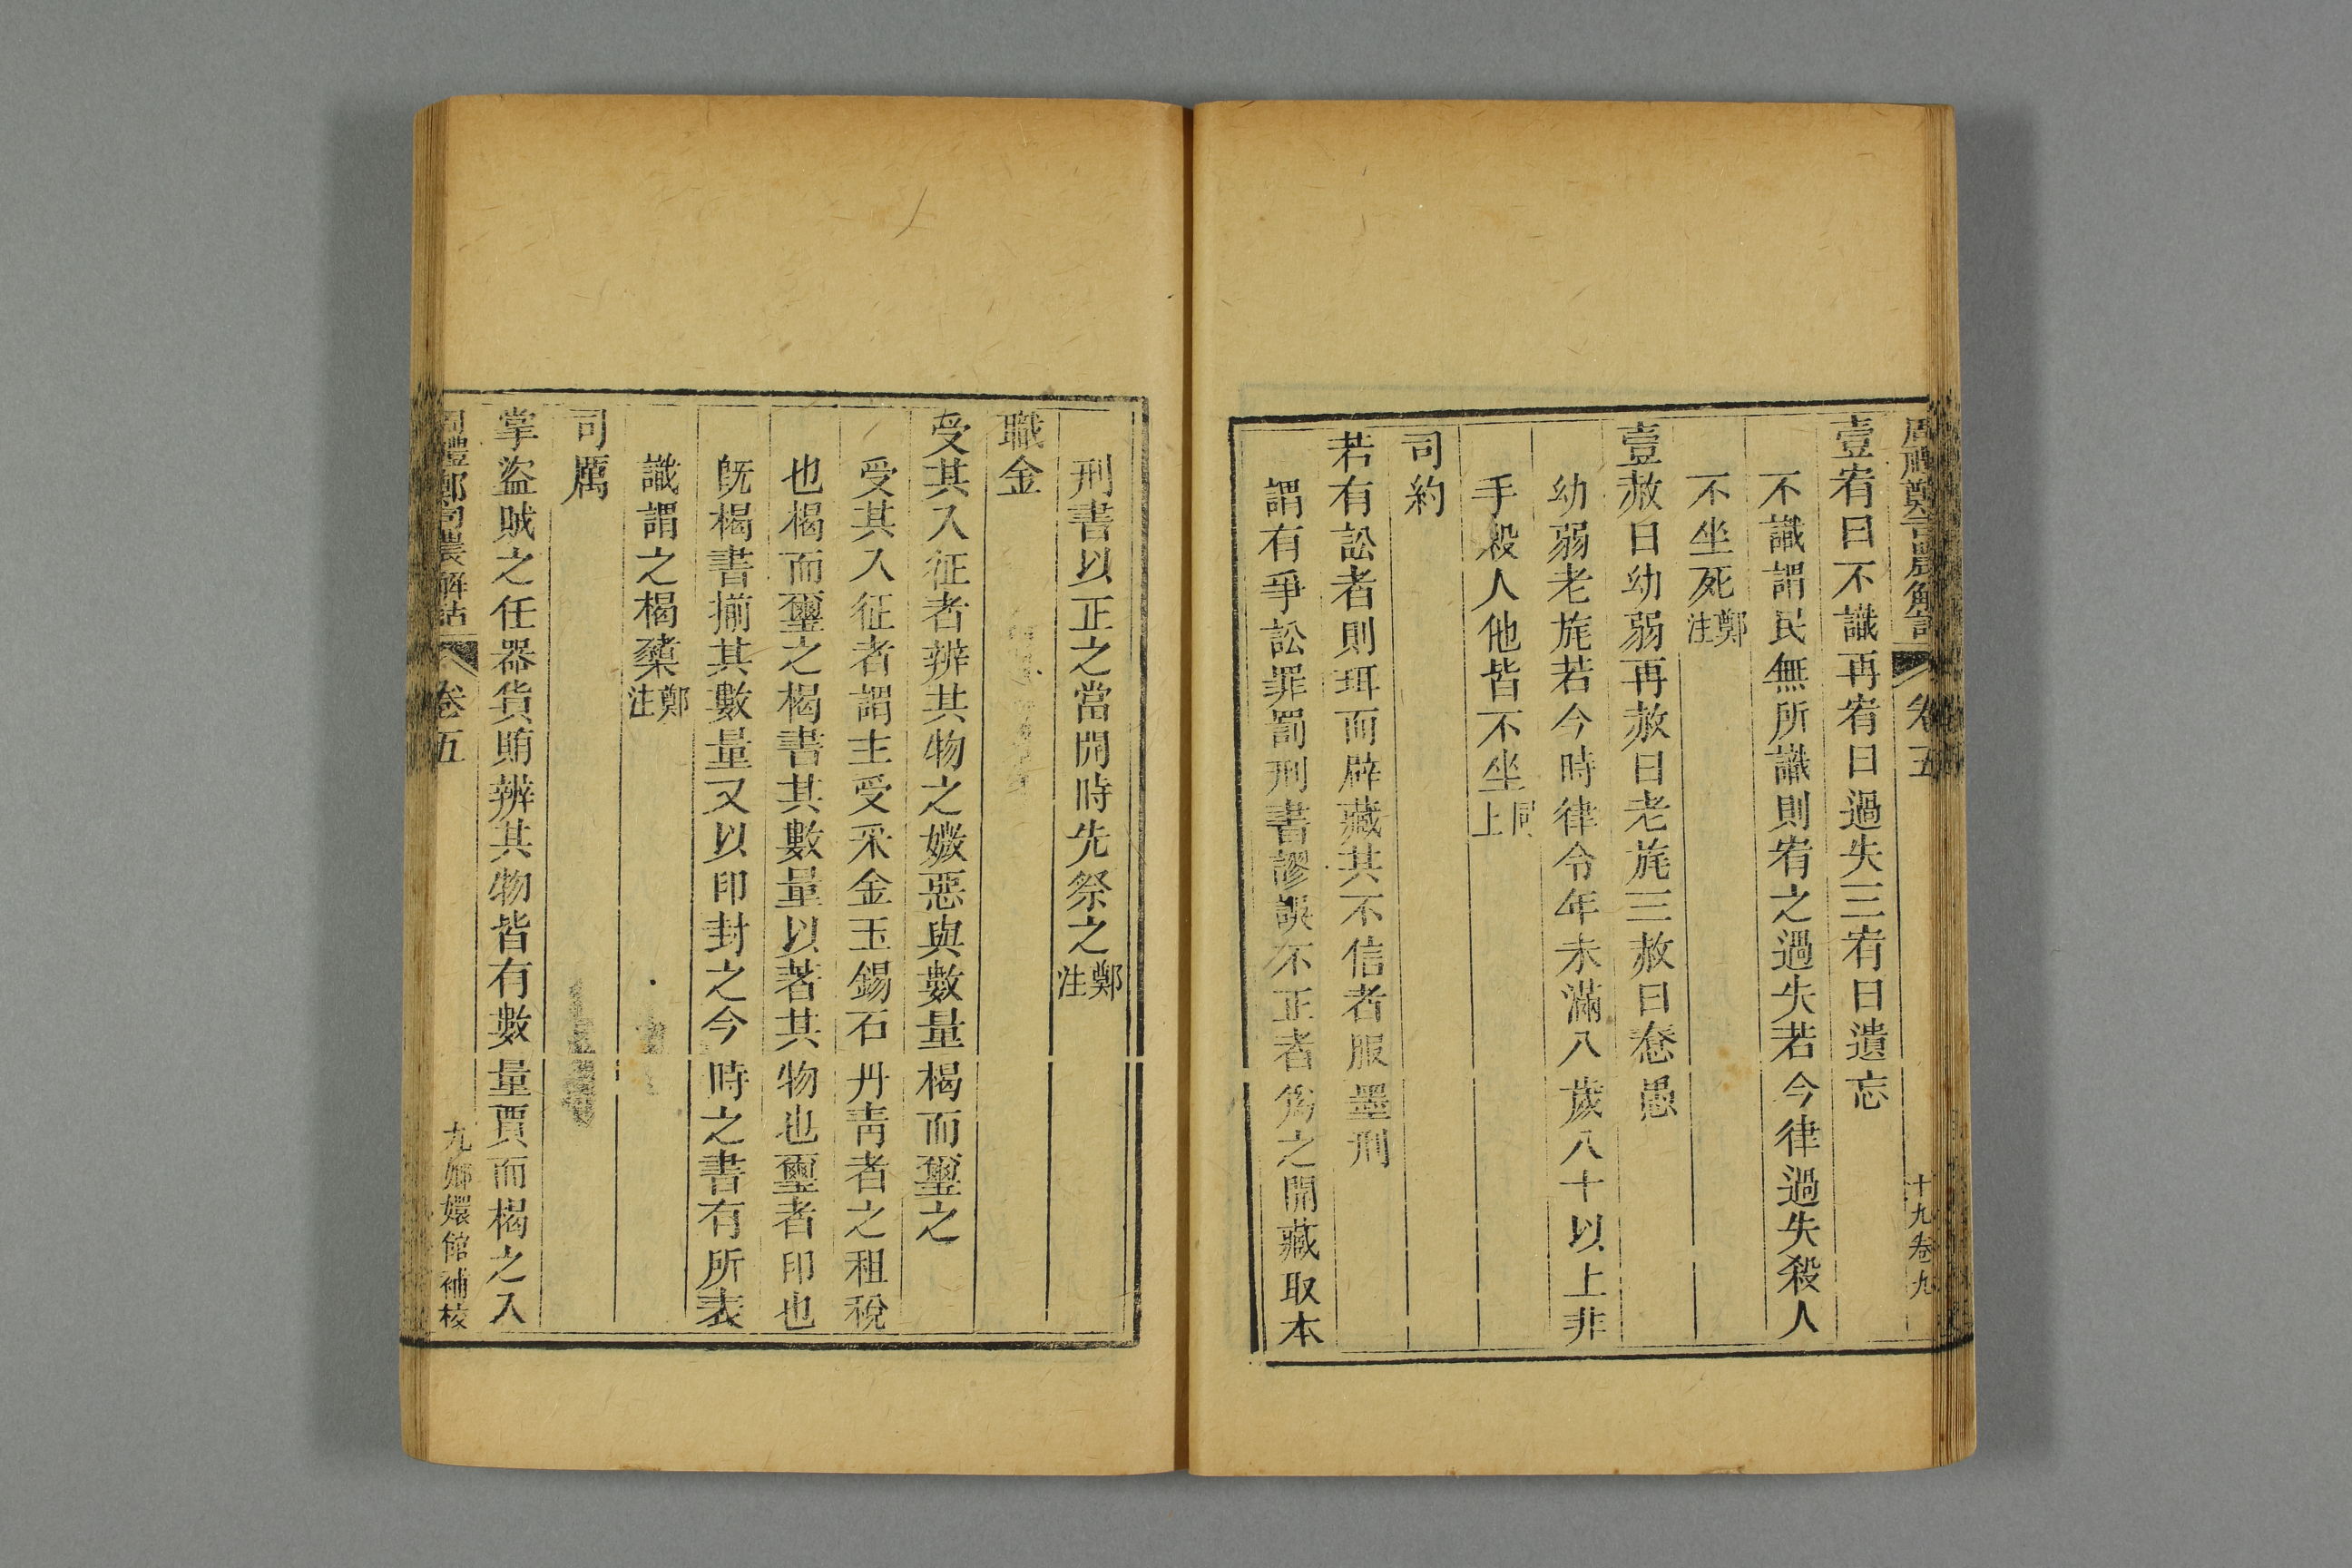 周禮鄭司農解詁 卷五 十九卷九
壹宥曰不識再宥曰過失三宥曰遺忘
不識謂民無所識則宥之過失若今律過失殺人
不坐死鄭注
壹赦曰幼弱再赦曰老旄三赦曰惷愚
幼弱老旄若今時律令年未滿八歲八十以上非
手殺人他皆不坐同上
司約
若有訟者則珥而辟藏其不信者服墨刑
謂有爭訟罪罰刑書謬誤不正者爲之開藏取本
刑書以正之當開時先祭之鄭注
職金
受其入征者辨其物之媺惡與數量楬而璽之
受其入征者謂主受采金玉錫石丹靑者之租稅
也楬而璽之楬書其數量以著其物也璽者印也
旣楬書揃其數量又以印封之今時之書有所表
識謂之楬櫫鄭注
司厲
掌盜賊之任器貨賄辨其物皆有數量賈而楬之入
周禮鄭司農解詁 卷五 九 嫏嬛館補校